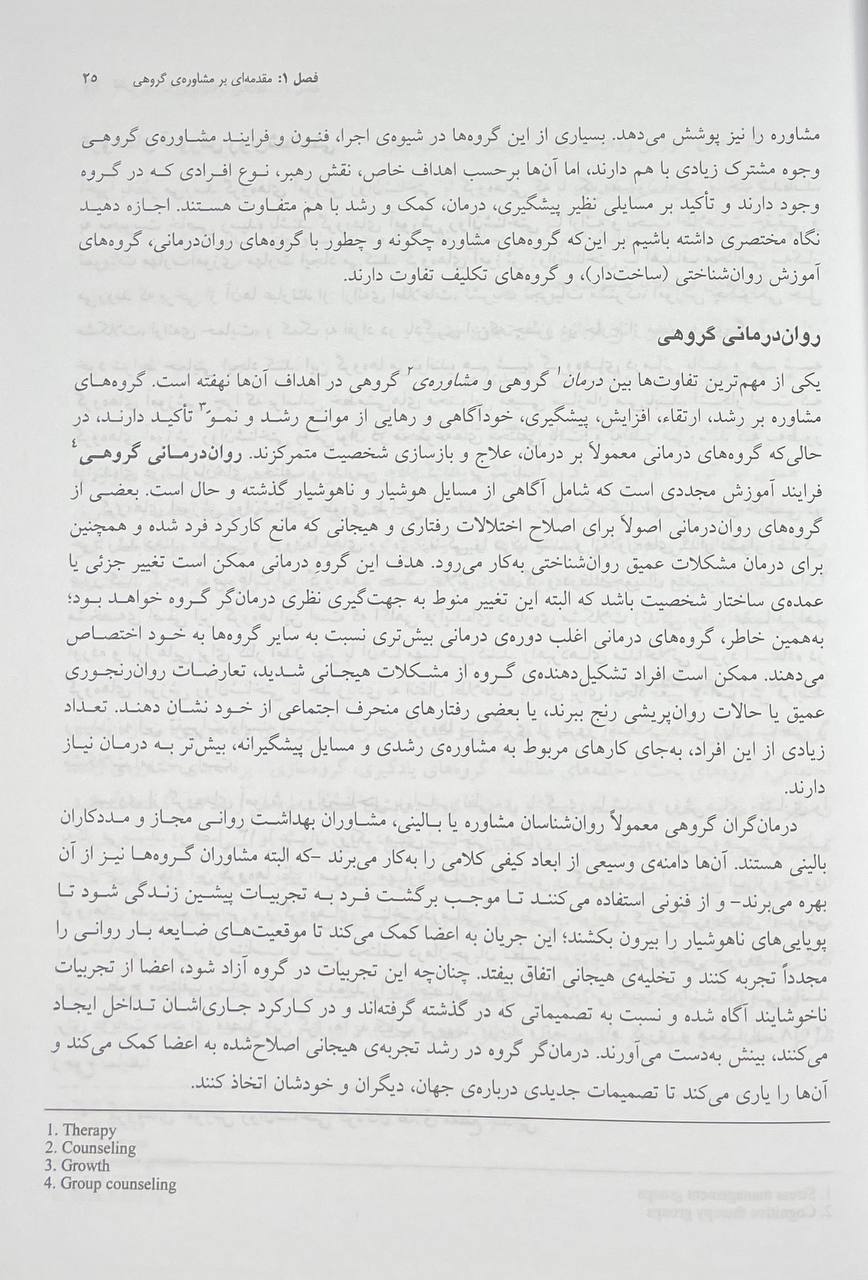 فصل ۱: مقدمه‌ای بر مشاوره‌ی گروهی ۲۵
مشاوره را نیز پوشش می‌دهد. بسیاری از این گروه‌ها در شیوه‌ی اجرا، فنون و فرایند مشاوره‌ی گروهی
وجوه مشترک زیادی با هم دارند، اما آن‌ها برحسب اهداف خاص، نقش رهبر، نوع افرادی که در گروه
وجود دارند و تأکید بر مسایلی نظیر پیشگیری، درمان، کمک و رشد با هم متفاوت هستند. اجازه دهید
نگاه مختصری داشته باشیم بر این‌که گروه‌های مشاوره چگونه و چطور با گروه‌های روان‌درمانی، گروه‌های
آموزش روان‌شناختی (ساخت‌دار)، و گروه‌های تکلیف تفاوت دارند.
روان‌درمانی گروهی
یکی از مهم‌ترین تفاوت‌ها بین درمان۱ گروهی و مشاوره‌ی۲ گروهی در اهداف آن‌ها نهفته است. گروه‌های
مشاوره بر رشد، ارتقاء، افزایش، پیشگیری، خودآگاهی و رهایی از موانع رشد و نموّ۳ تأکید دارند، در
حالی‌که گروه‌های درمانی معمولاً بر درمان، علاج و بازسازی شخصیت متمرکزند. روان‌درمانی گروهی۴
فرایند آموزش مجددی است که شامل آگاهی از مسایل هوشیار و ناهوشیار گذشته و حال است. بعضی از
گروه‌های روان‌درمانی اصولاً برای اصلاح اختلالات رفتاری و هیجانی که مانع کارکرد فرد شده و همچنین
برای درمان مشکلات عمیق روان‌شناختی به‌کار می‌رود. هدف این گروه درمانی ممکن است تغییر جزئی یا
عمده‌ی ساختار شخصیت باشد که البته این تغییر منوط به جهت‌گیری نظری درمان‌گر گروه خواهد بود؛
به‌همین خاطر، گروه‌های درمانی اغلب دوره‌ی درمانی بیش‌تری نسبت به سایر گروه‌ها به خود اختصاص
می‌دهند. ممکن است افراد تشکیل‌دهنده‌ی گروه از مشکلات هیجانی شدید، تعارضات روان‌رنجوری
عمیق یا حالات روان‌پریشی رنج ببرند، یا بعضی رفتارهای منحرف اجتماعی از خود نشان دهند. تعداد
زیادی از این افراد، به‌جای کارهای مربوط به مشاوره‌ی رشدی و مسایل پیشگیرانه، بیش‌تر به درمان نیاز
دارند.
درمان‌گران گروهی معمولاً روان‌شناسان مشاوره یا بالینی، مشاوران بهداشت روانی مجاز و مددکاران
بالینی هستند. آن‌ها دامنه‌ی وسیعی از ابعاد کیفی کلامی را به‌کار می‌برند –که البته مشاوران گروه‌ها نیز از آن
بهره می‌برند– و از فنونی استفاده می‌کنند تا موجب برگشت فرد به تجربیات پیشین زندگی شود تا
پویایی‌های ناهوشیار را بیرون بکشند؛ این جریان به اعضا کمک می‌کند تا موقعیت‌های ضایعه بار روانی را
مجدداً تجربه کنند و تخلیه‌ی هیجانی اتفاق بیفتد. چنان‌چه این تجربیات در گروه آزاد شود، اعضا از تجربیات
ناخوشایند آگاه شده و نسبت به تصمیماتی که در گذشته گرفته‌اند و در کارکرد جاری‌اشان تداخل ایجاد
می‌کنند، بینش به‌دست می‌آورند. درمان‌گر گروه در رشد تجربه‌ی هیجانی اصلاح‌شده به اعضا کمک می‌کند و
آن‌ها را یاری می‌کند تا تصمیمات جدیدی درباره‌ی جهان، دیگران و خودشان اتخاذ کنند.
1. Therapy
2. Counseling
3. Growth
4. Group counseling
1. Stress management groups
2. Cognitive therapy groups